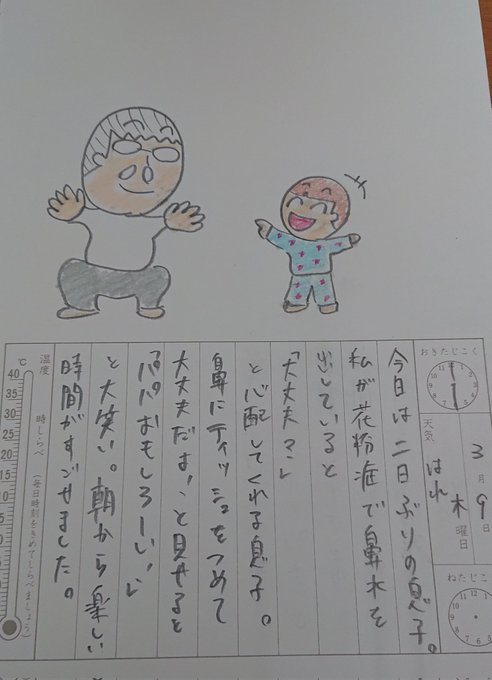 おきたじこく
3月9日
木曜日
天気
はれ
ねたじこ
今日は二日ぶりの息子。
私が花粉症で鼻水を
出していると
「大丈夫？」
と心配してくれる息子。
鼻にティッシュをつめて
大丈夫だよ！と見せると
「パパおもしろーい！」
と大笑い。朝から楽しい
時間がすごせました。
温度
時しらべ
(毎日時刻をきめてしらべましょう)
℃
40
35
30
25
20
15
10
5
0